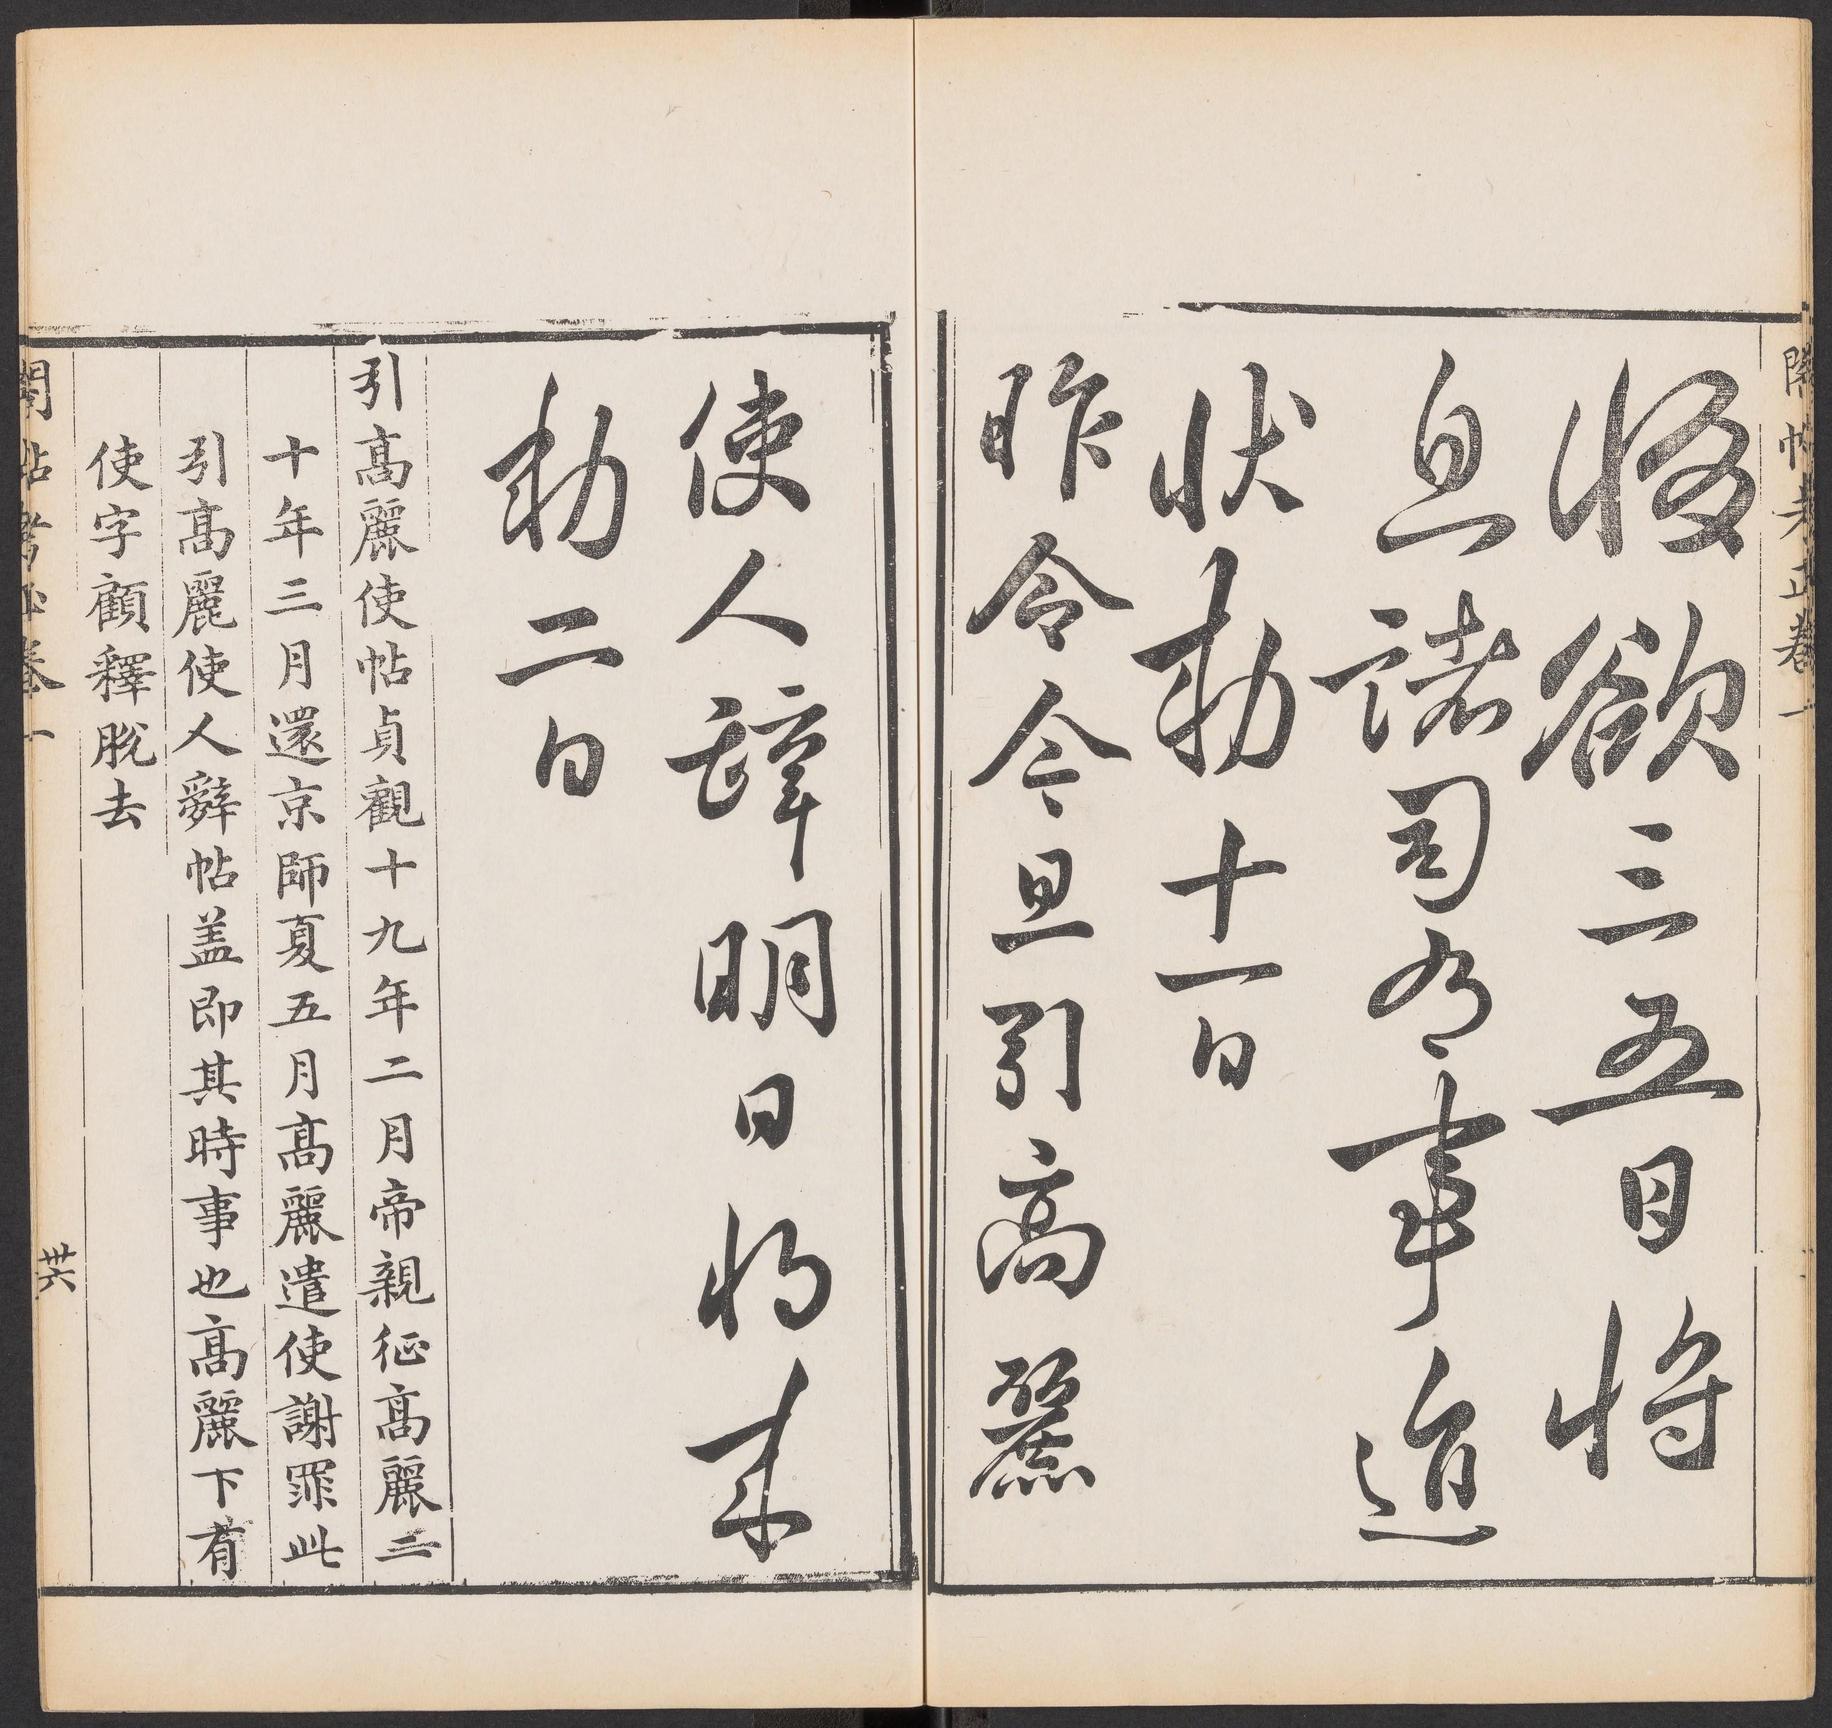 欲三五日將
息諸司有事進
狀勅十一日
昨令今旦引高麗
使人辭明日將来
勅二日
引高麗使帖貞觀十九年二月帝親征高麗二
十年三月還京師夏五月高麗遣使謝罪此
引高麗使人辭帖盖即其時事也高麗下有
使字顧釋脫去
卅六